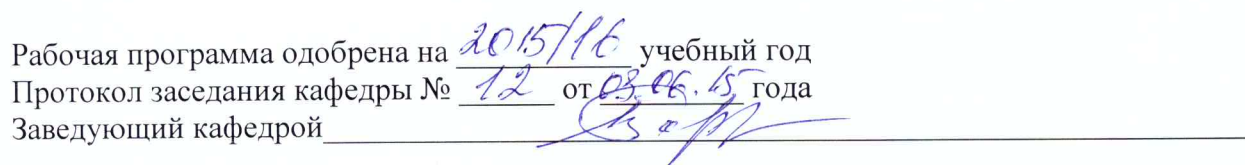 Рабочая программа одобрена на 2015/16 учебный год
Протокол заседания кафедры № 12 от 03.06.15 года
Заведующий кафедрой